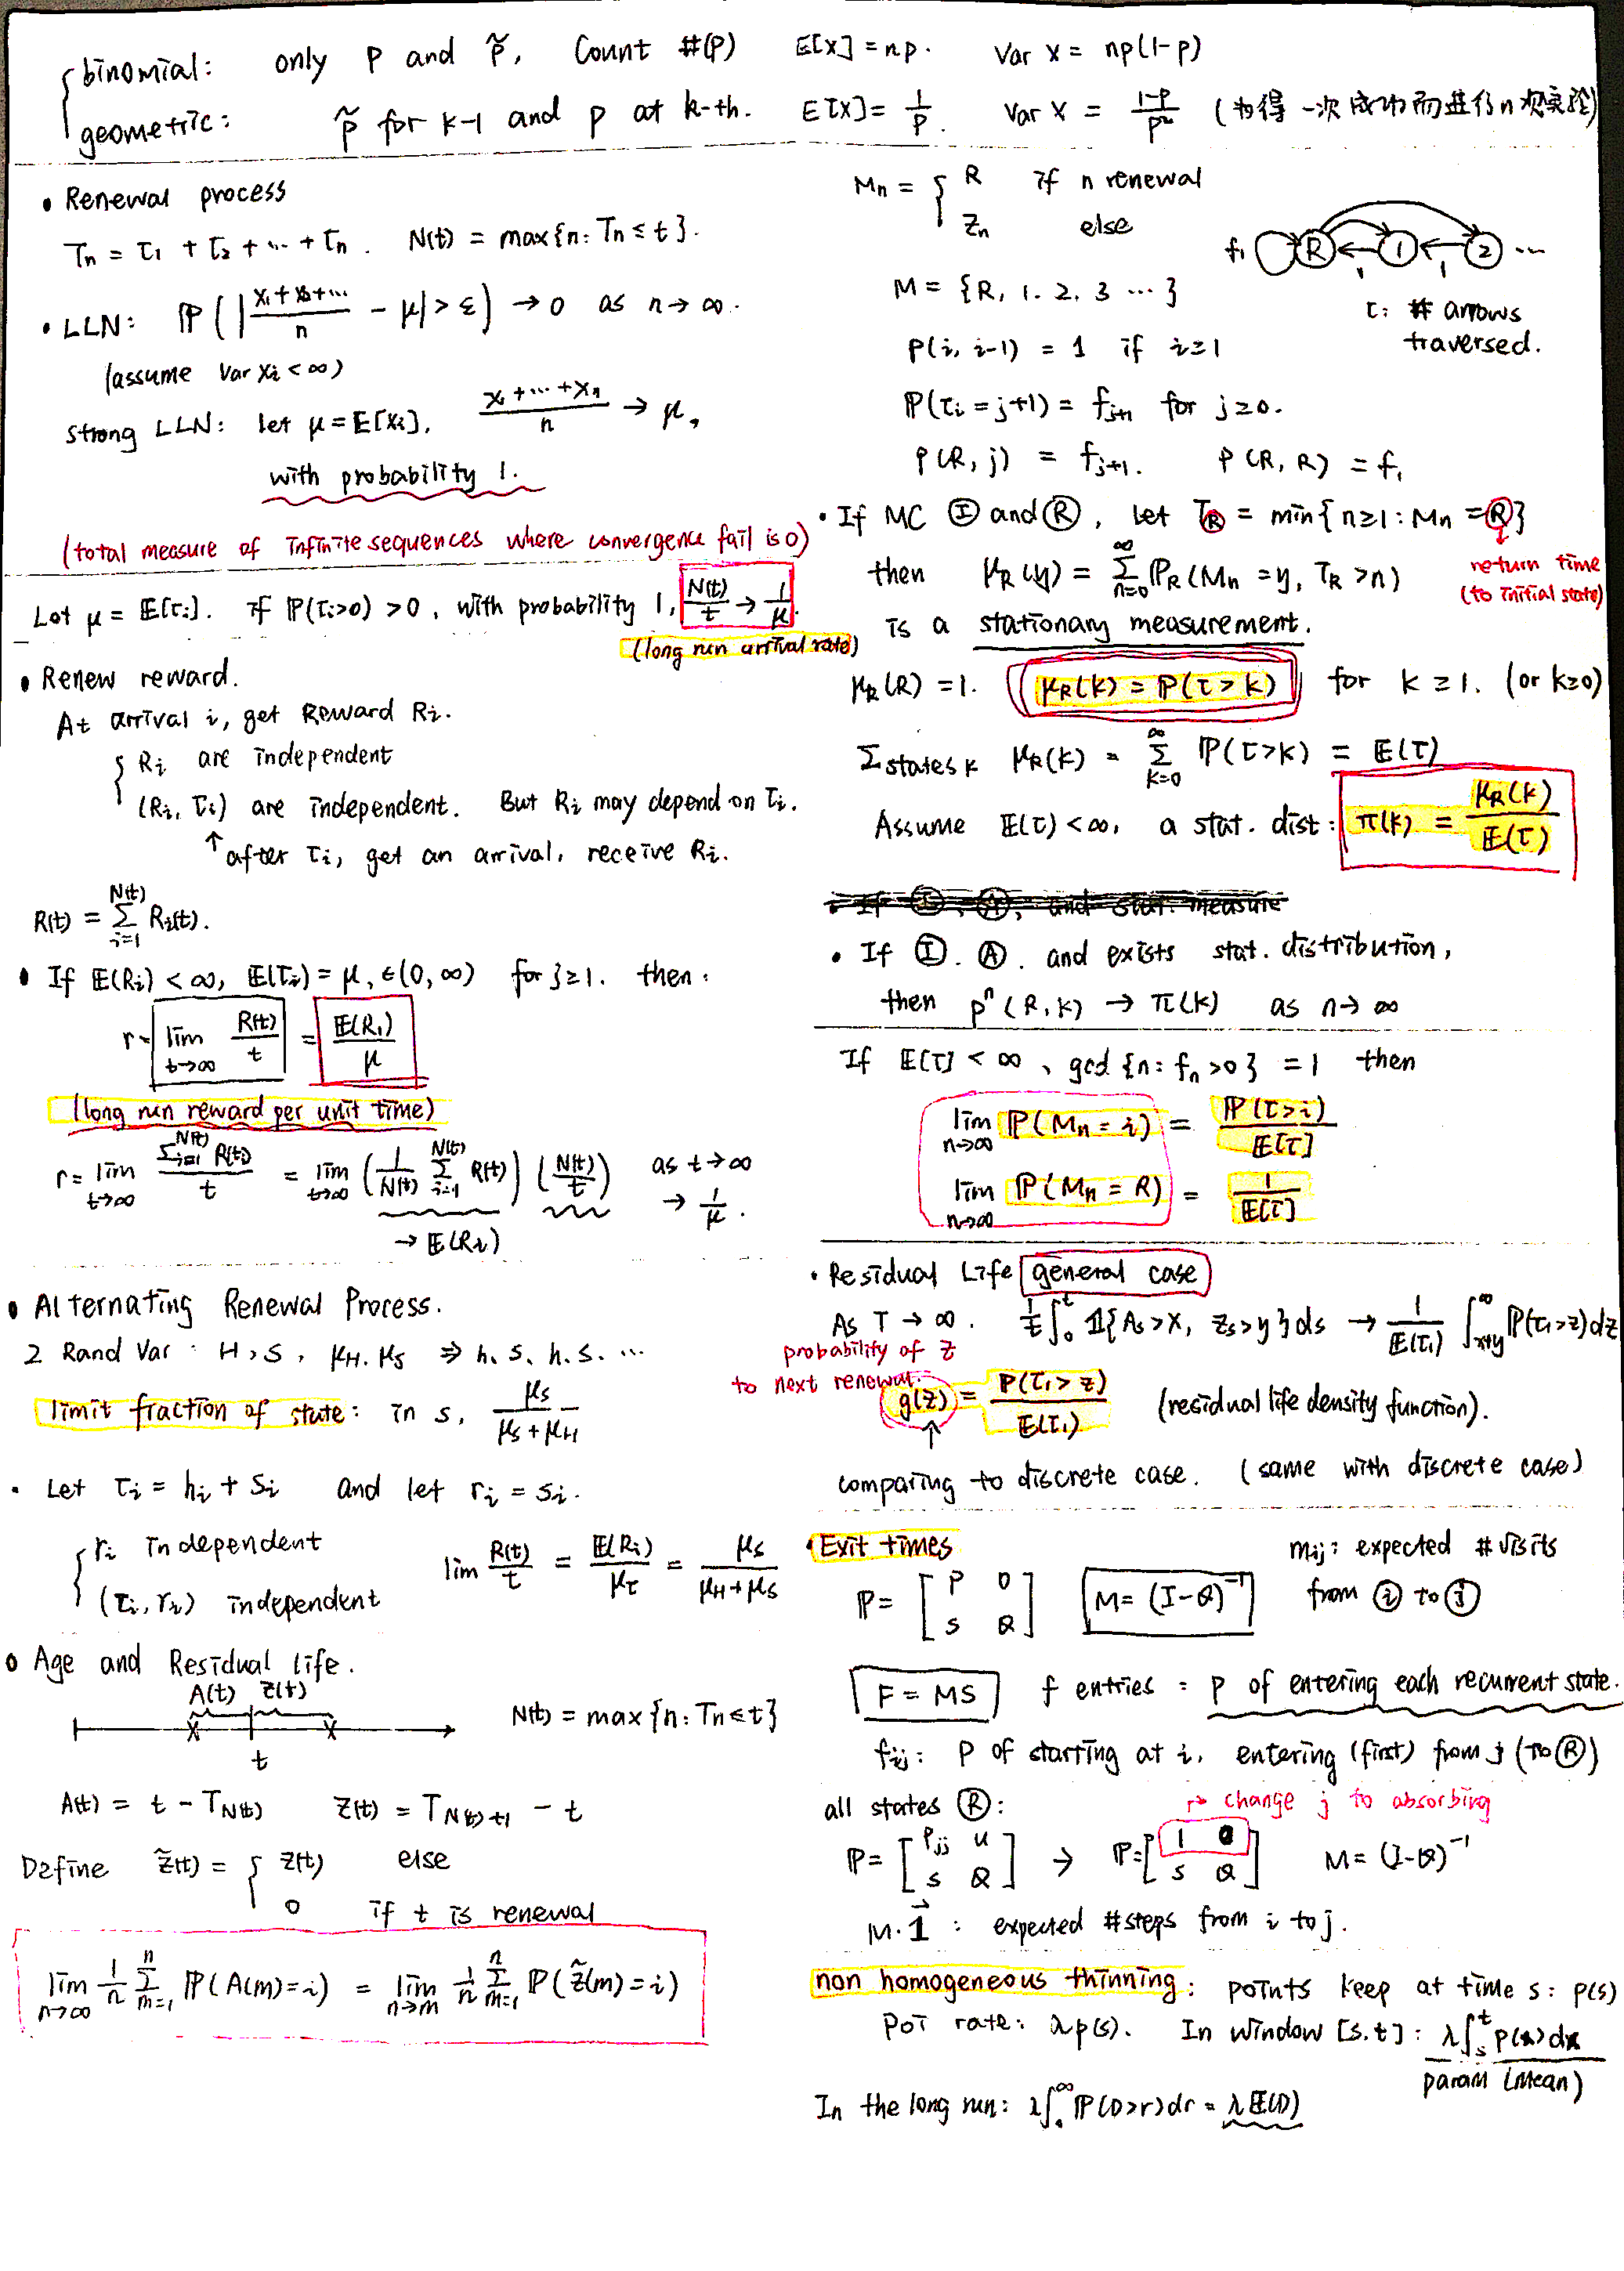 binomial: only p and p̃, count #(p) E[X] = np. Var X = np(1-p)
geometric: p̃ for k-1 and p at k-th. E[X] = 1/p. Var X = (1-p)/p² (为得一次成功而进行n次实验)
• Renewal process
Tn = τ1 + τ2 + ... + τn. N(t) = max{n: Tn ≤ t}.
• LLN: ℙ(|(X1+X2+...)/n - μ| > ε) → 0 as n → ∞.
(assume Var Xi < ∞)
strong LLN: let μ = 𝔼[Xi], (X1+...+Xn)/n → μ,
with probability 1.
(total measure of infinite sequences where convergence fail is 0)
Let μ = 𝔼[τi]. if ℙ(τi>0) > 0, with probability 1, N(t)/t → 1/μ.
(long run arrival rate)
• Renew reward.
At arrival i, get Reward Ri.
Ri are independent
(Ri, τi) are independent. But Ri may depend on τi.
↑ after τi, get an arrival, receive Ri.
R(t) = Σ_{i=1}^{N(t)} Ri(t).
• If 𝔼(Ri) < ∞, 𝔼(τi) = μ, ∈(0, ∞) for j≥1. then:
r = lim_{t→∞} R(t)/t = 𝔼(R1)/μ
(long run reward per unit time)
r = lim_{t→∞} Σ_{i=1}^{N(t)} R(ti)/t = lim_{t→∞} (1/N(t) Σ_{i=1}^{N(t)} R(t)) (N(t)/t) as t→∞
→ 𝔼(Ri) → 1/μ.
• Alternating Renewal Process.
2 Rand Var: H, S, μH. μS ⇒ h. s. h. s. ...
limit fraction of state: in s, μS/(μS+μH)
• Let τi = hi + Si and let ri = si.
ri independent
(τi, ri) independent
lim R(t)/t = 𝔼(Ri)/μτ = μS/(μH+μS)
• Age and Residual Life.
A(t) Z(t)
t
N(t) = max{n: Tn≤t}
A(t) = t - T_{N(t)} Z(t) = T_{N(t)+1} - t
Define Z̃(t) = { Z(t) else
0 if t is renewal
lim_{n→∞} 1/n Σ_{m=1}^{n} ℙ(A(m)=i) = lim_{n→m} 1/n Σ_{m=1}^{n} ℙ(Z̃(m)=i)
Mn = { R if n renewal
Zn else
f1 R 1 2 ...
1 1
M = {R, 1. 2. 3 ...}
τ: # arrows
traversed.
P(i, i-1) = 1 if i≥1
ℙ(τi = j+1) = f_{j+1} for j≥0.
P(R, j) = f_{j+1}. P(R, R) = f1
• If MC Ⓘ and Ⓡ, let T_R = min{n≥1: Mn = R}
return time
(to initial state)
then μR(y) = Σ_{n=0}^{∞} ℙR(Mn = y, TR > n)
is a stationary measurement.
μR(R) = 1. μR(k) = ℙ(τ > k) for k ≥ 1. (or k≥0)
Σ states k μR(k) = Σ_{k=0}^{∞} ℙ(τ>k) = 𝔼(τ)
Assume 𝔼(τ) < ∞, a stat. dist: π(k) = μR(k)/𝔼(τ)
• If Ⓘ, Ⓐ, and stat. measure
• If Ⓘ. Ⓐ. and exists stat. distribution,
then pⁿ(R, k) → π(k) as n→∞
If 𝔼[τ] < ∞, gcd{n: fn>0} = 1 then
lim_{n→∞} ℙ(Mn = i) = ℙ(τ>i)/𝔼[τ]
lim_{n→∞} ℙ(Mn = R) = 1/𝔼[τ]
• Residual Life general case
As T → ∞. 1/t ∫_0^t 𝟙{As>x, Zs>y}ds → 1/𝔼(τ1) ∫_{x+y}^{∞} ℙ(τ1>z)dz
probability of z
to next renewal.
g(z) = ℙ(τ1>z)/𝔼(τ1) (residual life density function).
↑
comparing to discrete case. (same with discrete case)
• Exit times
mij: expected # visits
from ⓘ to ⓙ
ℙ = [P 0; S Q] M = (I-Q)⁻¹
F = MS f entries: P of entering each recurrent state.
fij: P of starting at i, entering (first) from j (to Ⓡ)
all states Ⓡ: → change j to absorbing
ℙ = [Pjj u; S Q] → ℙ = [1 0; S Q] M = (I-Q)⁻¹
M·1⃗: expected #steps from i to j.
non homogeneous thinning: points keep at time s: p(s)
Poi rate: λp(s). In window [s,t]: λ∫_s^t p(x)dx
param (Mean)
In the long run: λ∫_0^∞ ℙ(D>r)dr = λ𝔼(D)